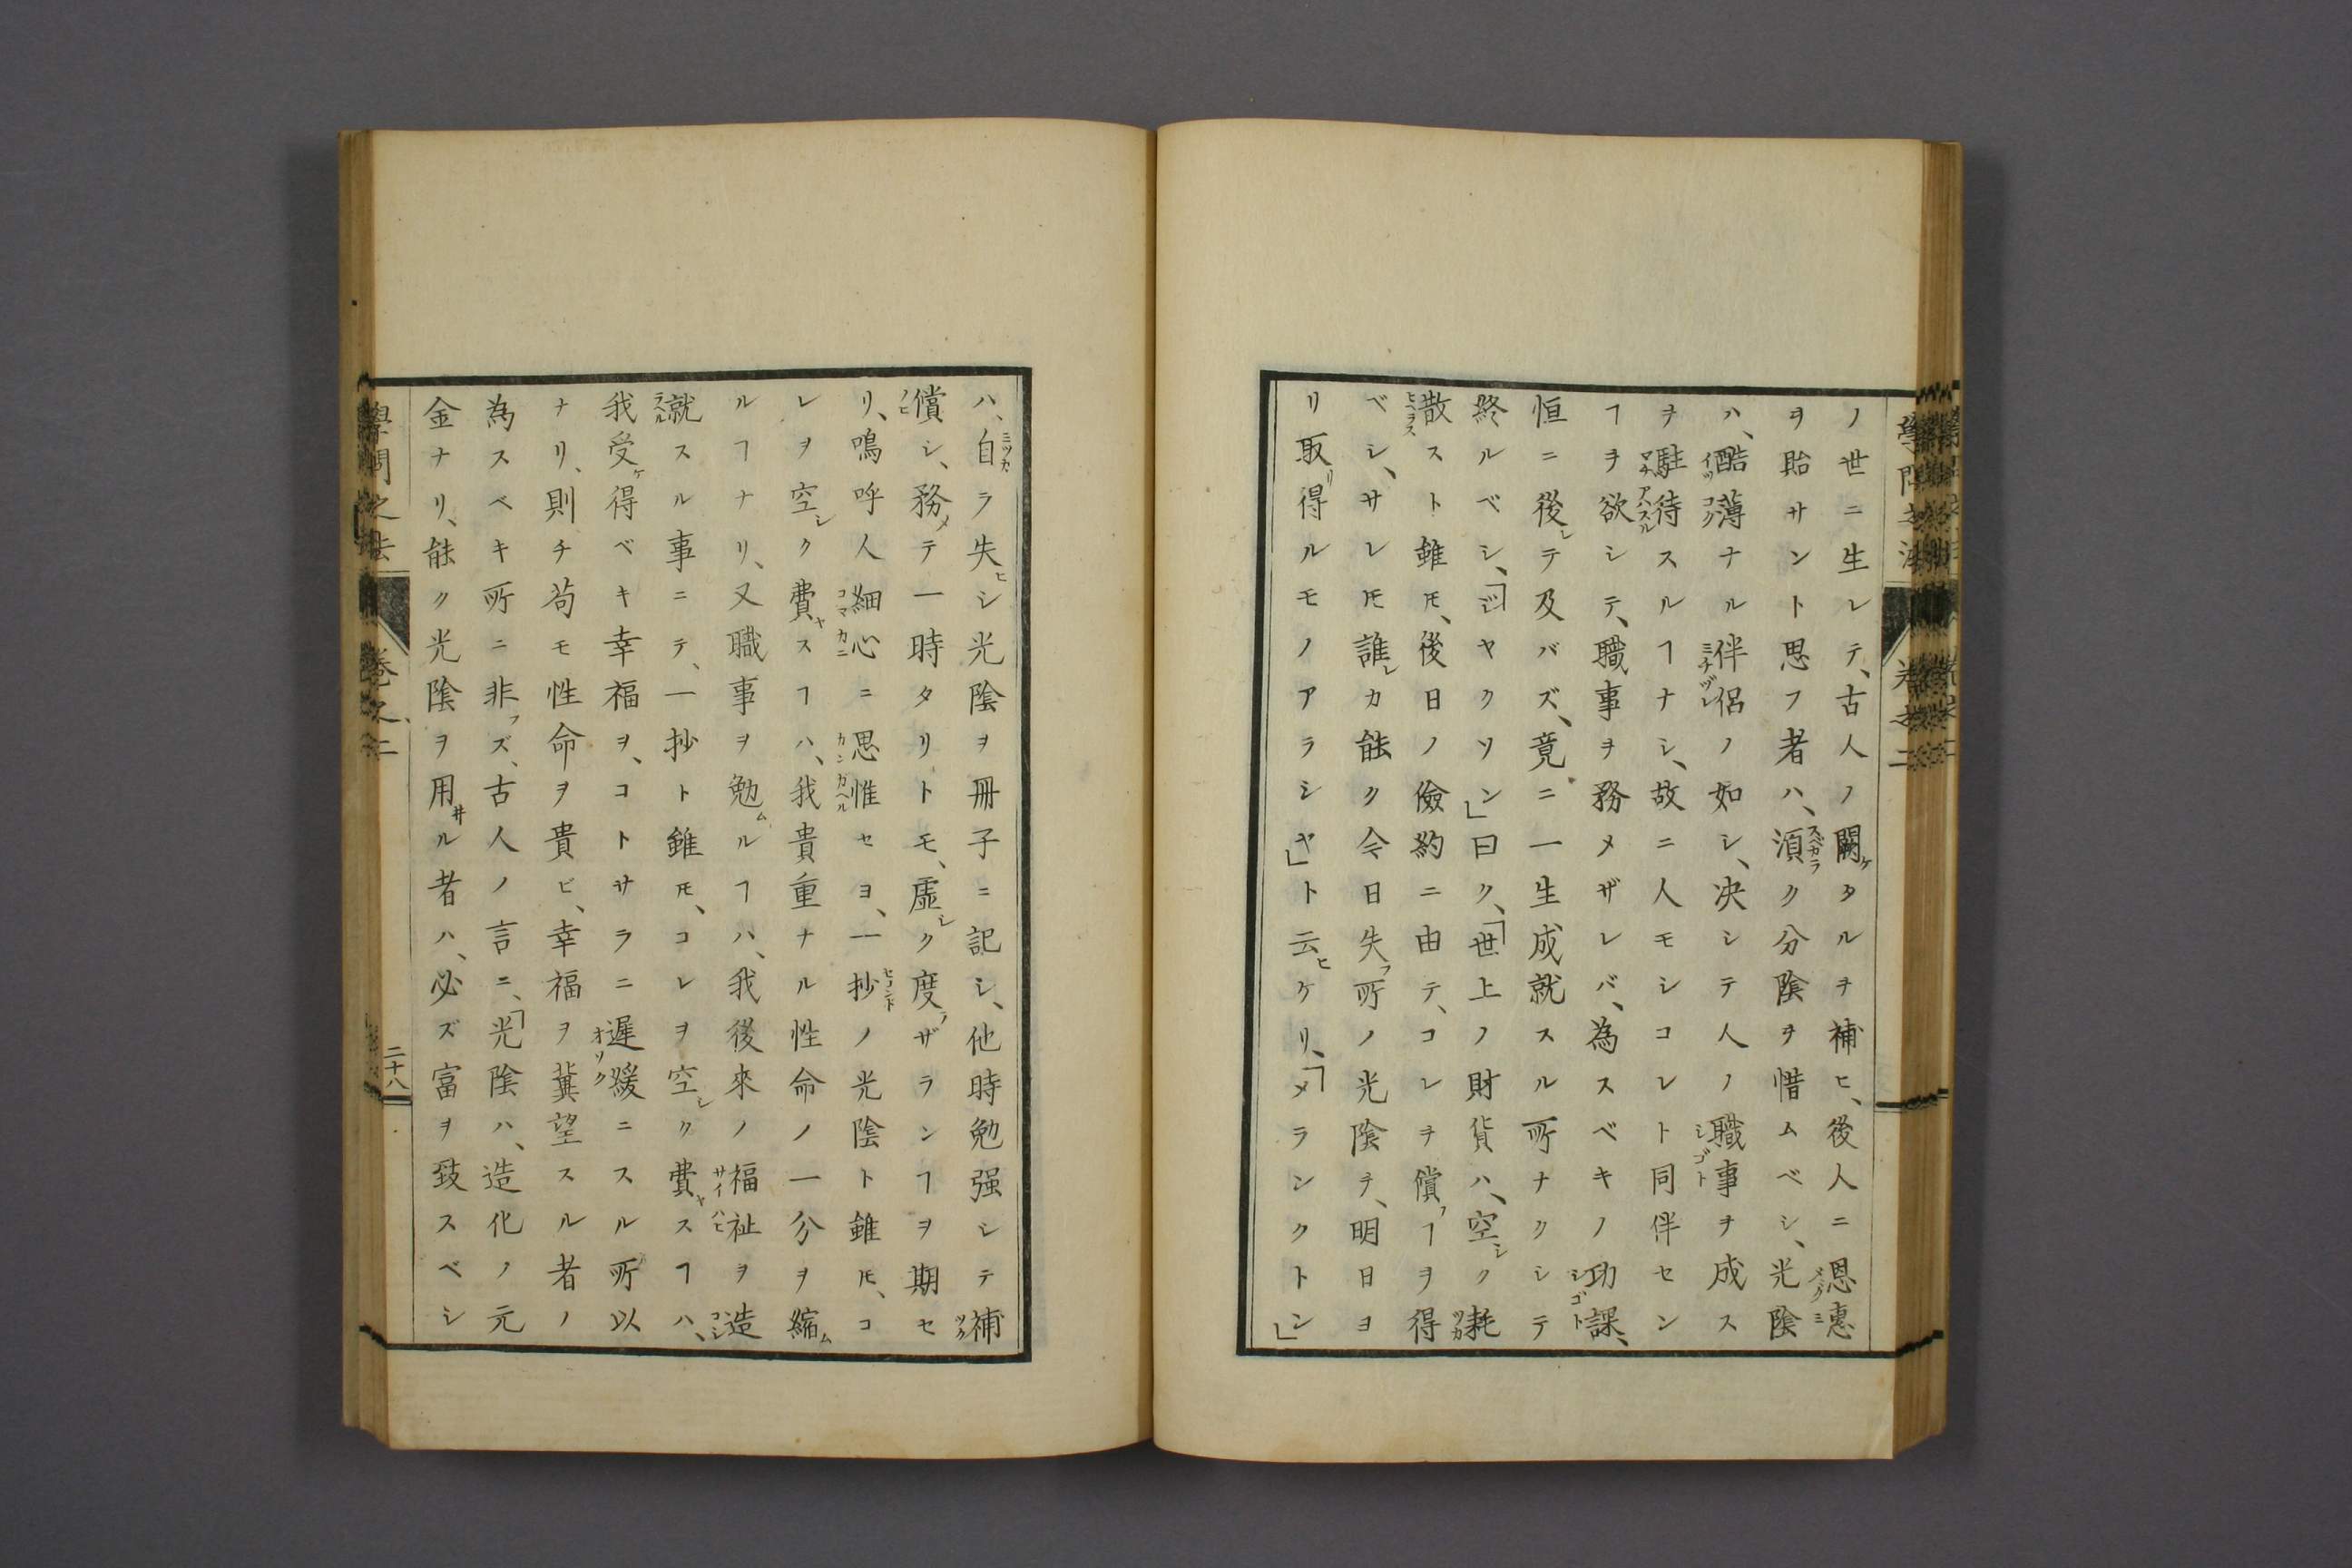 ノ世ニ生レテ、古人ノ闕ケタルヲ補ヒ、後人ニ恩惠
ヲ貽サント思フ者ハ、須ク分陰ヲ惜ムベシ、光陰
ハ、酷薄ナル伴侶ノ如シ、决シテ人ノ職事ヲ成ス
ヲ駐待スルヿナシ、故ニ人モシコレト同伴セン
ヿヲ欲シテ、職事ヲ務メザレバ、為スベキノ功課、
恒ニ後レテ及バズ、竟ニ一生成就スル所ナクシテ
終ルベシ、「ジヤクソン」曰ク、「世上ノ財貨ハ、空シク耗
散スト雖𪜈、後日ノ儉約ニ由テ、コレヲ償フヿヲ得
ベシ、サレ𪜈誰レカ能ク今日失フ所ノ光陰ヲ、明日ヨ
リ取リ得ルモノアラシヤ」ト云ヒケリ、「メランクトン」
ハ、自ラ失ヒシ光陰ヲ冊子ニ記シ、他時勉强シテ補
償シ、務メテ一時タリトモ、虛シク度ラザランヿヲ期セ
リ、嗚呼人細心ニ思惟セヨ、一抄ノ光陰ト雖𪜈、コ
レヲ空シク費ヤスヿハ、我貴重ナル性命ノ一分ヲ縮ム
ルヿナリ、又職事ヲ勉ムルヿハ、我後來ノ福祉ヲ造
就スル事ニテ、一抄ト雖𪜈、コレヲ空シク費ヤスヿハ、
我受ケ得ベキ幸福ヲ、コトサラニ遲緩ニスル所以
ナリ、則チ苟モ性命ヲ貴ビ、幸福ヲ冀望スル者ノ
為スベキ所ニ非ズ、古人ノ言ニ、「光陰ハ、造化ノ元
金ナリ、能ク光陰ヲ用井ル者ハ、必ズ富ヲ致スベシ
學問之法
卷之二
二十八